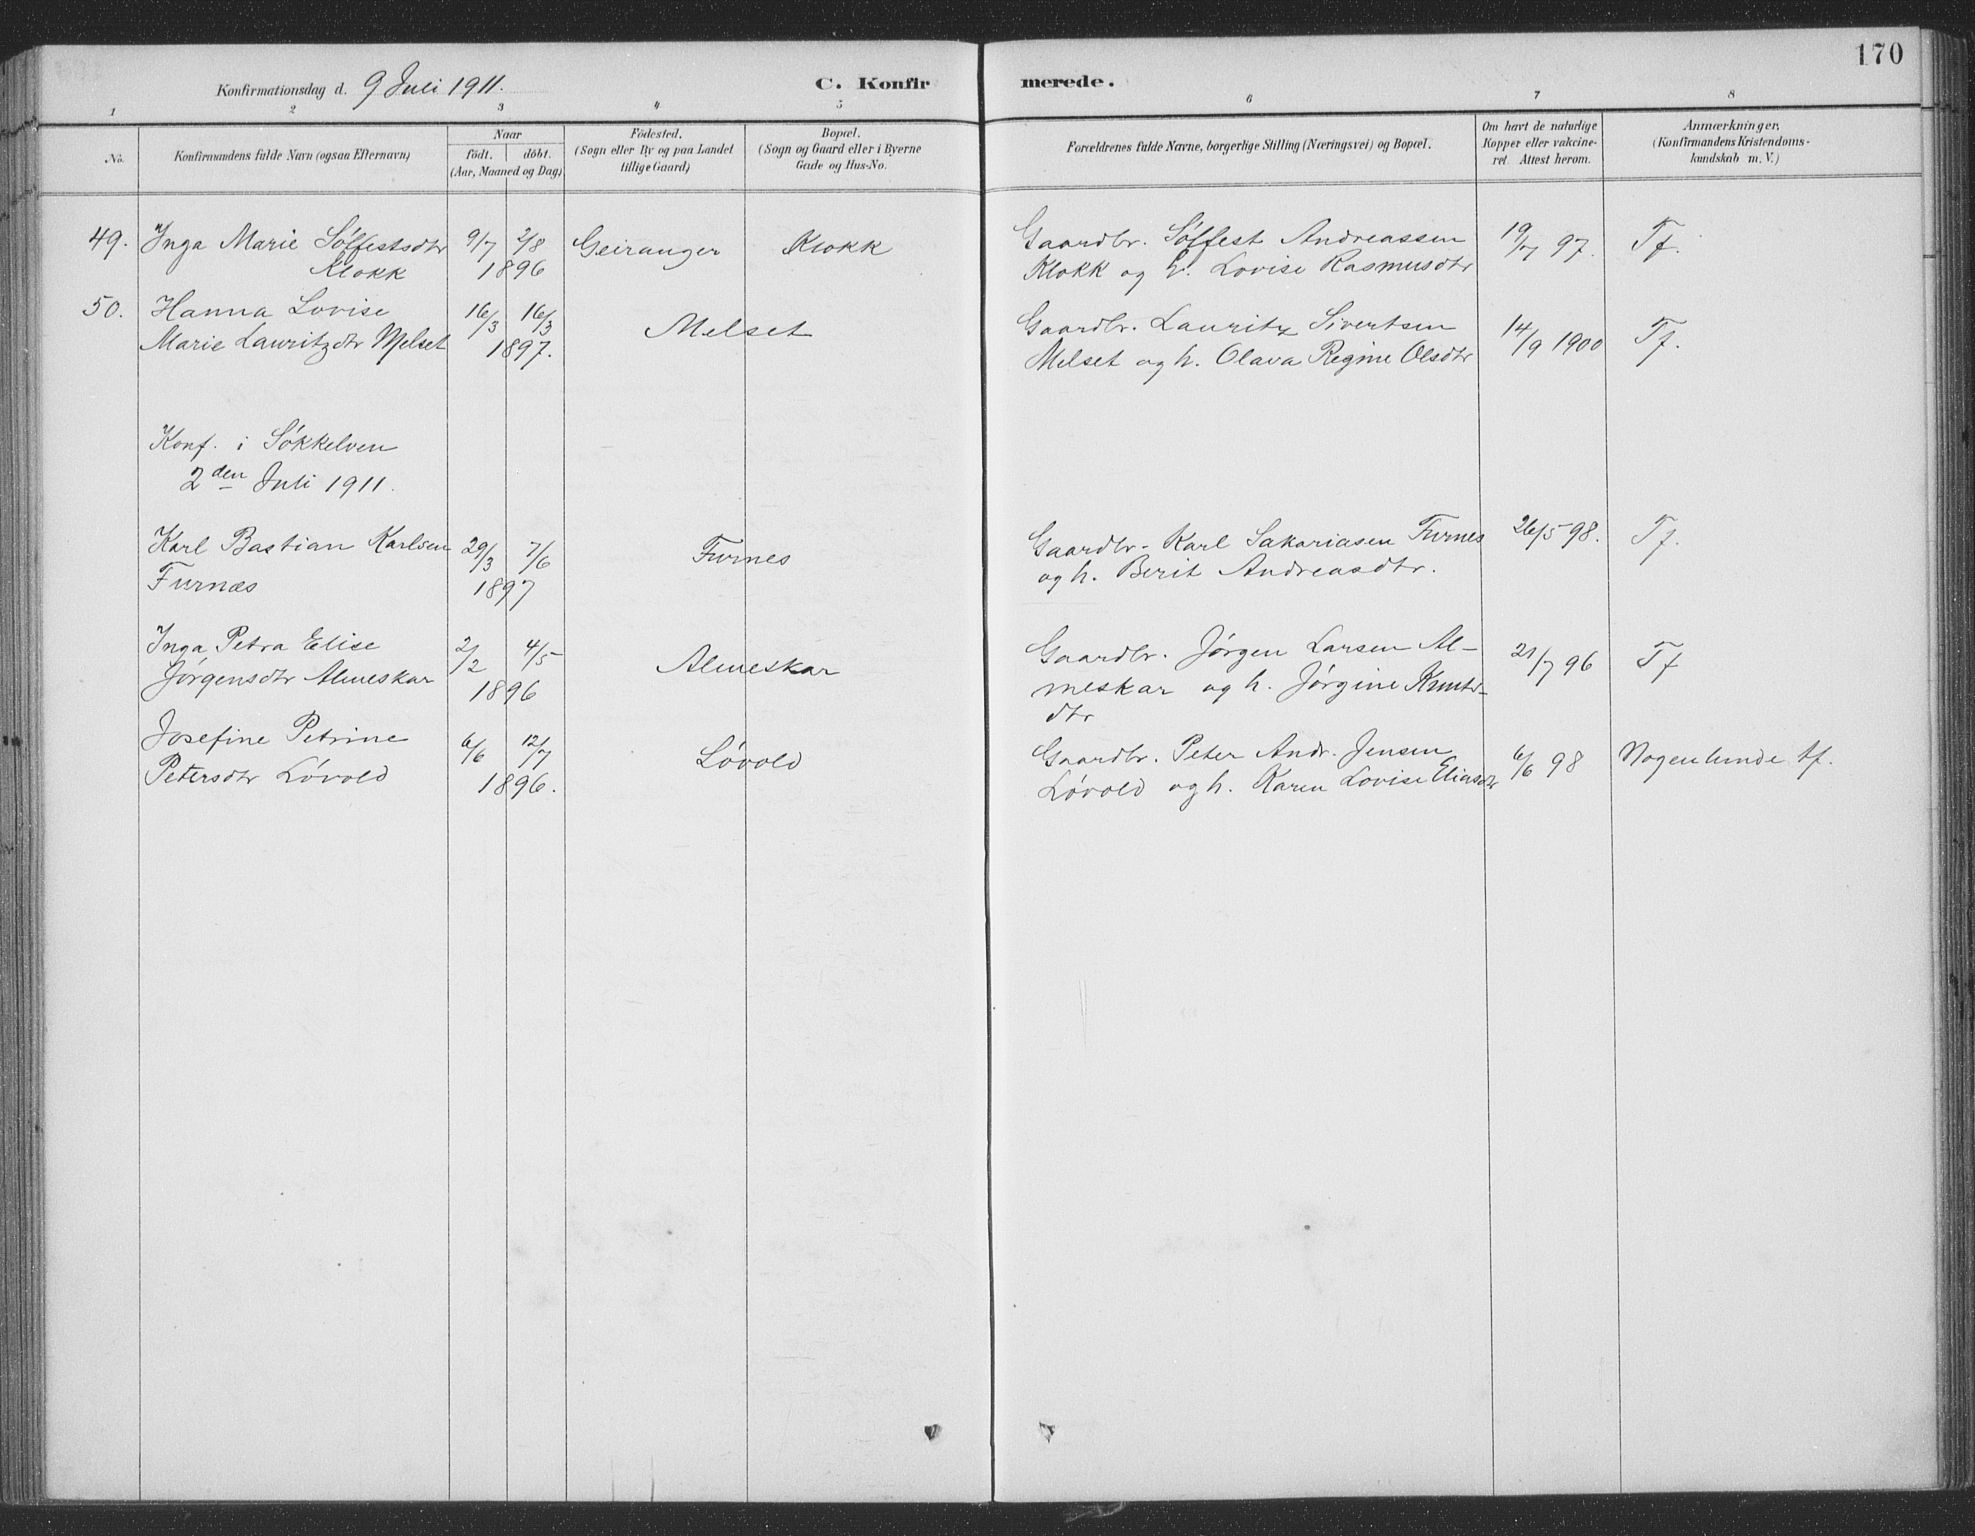 170
Konfirmationsdag d. 9 Juli 1911.
C. Konfirmerede.
1 2 3 4 5 6 7 8
No.
Konfirmandens fulde Navn (ogsaa Efternavn)
Naar
födt. döbt.
(Aar, Maaned og Dag)
Födested.
(Sogn eller By og paa Landet
tillige Gaard)
Bopæl.
(Sogn og Gaard eller i Byerne
Gade og Hus-No.
Forældrenes fulde Navne, borgerlige Stilling (Næringsvei) og Bopæl.
Om havt de naturlige
Kopper eller vakcine-
ret. Attest herom.
Anmærkninger.
(Konfirmandens Kristendoms-
kundskab m. V.)
49. Inga Marie Sölfestsdtr 9/7 2/8 Geiranger Klokk Gaardbr. Sölfest Andreassen 19/7 97. Tf.
Klokk 1896 Klokk og h. Lovise Rasmusdtr
50. Hanna Lovise 16/3 16/3 Melset Gaardbr. Lauritz Sivertsen 14/9 1900 Tf.
Marie Lauritzdtr Melset 1897. Melset og h. Olava Regine Olsdtr
Konf. i Sökkelven
2den Juli 1911.
Karl Bastian Karlsen 29/3 7/6 Furnes Gaardbr. Karl Sakariasen Furnes 26/5 98. Tf.
Furnæs 1897 og h. Berit Andreasdtr.
Inga Petra Elise 2/2 4/5 Almeskar Gaardbr. Jørgen Larsen Al- 21/7 96 Tf
Jørgensdtr Almeskar 1896 meskar og h. Jørgine Knuts-
dtr
Josefine Petrine 6/6 12/7 Lövold Gaardbr. Peter Andr. Jensen 6/6 98 Nogenlunde tf.
Petersdtr Lövold 1896. Lövold og h. Karen Lovise Eliasdtr